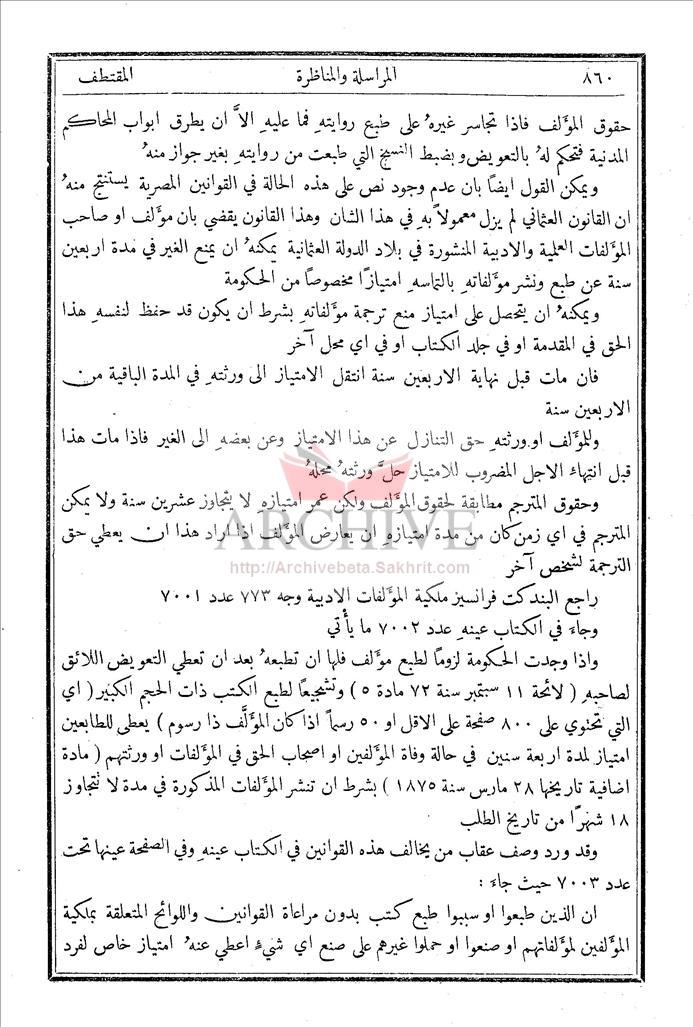 ٨٦٠ المراسلة والمناظرة المقتطف
حقوق المؤلف فاذا تجاسر غيرهُ على طبع روايتهِ فما عليهِ الاَّ ان يطرق ابواب المحاكم
المدنية فتحكم لهُ بالتعويض وبضبط النسخ التي طبعت من روايتهِ بغير جواز منهُ
ويمكن القول ايضاً بان عدم وجود نص على هذه الحالة في القوانين المصرية يستنتج منهُ
ان القانون العثماني لم يزل معمولاً بهِ في هذا الشان وهذا القانون يقضي بان مؤلف او صاحب
المؤلفات العلمية والادبية المنشورة في بلاد الدولة العثمانية يمكنهُ ان يمنع الغير في مدة اربعين
سنة عن طبع ونشر مؤلفاتهِ بالتماسهِ امتيازًا مخصوصاً من الحكومة
ويمكنهُ ان يتحصل على امتياز منع ترجمة مؤلفاتهِ بشرط ان يكون قد حفظ لنفسهِ هذا
الحق في المقدمة او في جلد الكتاب او في اي محل آخر
فان مات قبل نهاية الاربعين سنة انتقل الامتياز الى ورثتهِ في المدة الباقية من
الاربعين سنة
وللمؤلف او ورثتهِ حق التنازل عن هذا الامتياز وعن بعضهِ الى الغير فاذا مات هذا
قبل انتهاء الاجل المضروب للامتياز حلَّ ورثتهُ محلهُ
وحقوق المترجم مطابقة لحقوق المؤلف ولكن عمر امتيازهِ لا يتجاوز عشرين سنة ولا يمكن
المترجم في اي زمن كان من مدة امتيازهِ ان يعارض المؤلف اذا اراد هذا ان يعطي حق
الترجمة لشخص آخر
راجع البندكت فرانسيز ملكية المؤلفات الادبية وجه ٧٧٣ عدد ٧٠٠١
وجاءَ في الكتاب عينهِ عدد ٧٠٠٢ ما يأْتي
واذا وجدت الحكومة لزوماً لطبع مؤلف فلها ان تطبعهُ بعد ان تعطي التعويض اللائق
لصاحبهِ ( لائحة ١١ سبتمبر سنة ٧٢ مادة ٥ ) وتشجيعاً لطبع الكتب ذات الحجم الكبير ( اي
التي تحتوي على ٨٠٠ صفحة على الاقل او ٥٠ رسماً اذا كان المؤلَّف ذا رسوم ) يعطى للطابعين
امتياز لمدة اربعة سنين في حالة وفاة المؤلفين او اصحاب الحق في المؤلفات او ورثتهم ( مادة
اضافية تاريخها ٢٨ مارس سنة ١٨٧٥ ) بشرط ان تنشر المؤلفات المذكورة في مدة لا تتجاوز
١٨ شهرًا من تاريخ الطلب
وقد ورد وصف عقاب من يخالف هذه القوانين في الكتاب عينهِ وفي الصفحة عينها تحت
عدد ٧٠٠٣ حيث جاءَ :
ان الذين طبعوا او سببوا طبع كتب بدون مراعاة القوانين واللوائح المتعلقة بملكية
المؤلفين لمؤلفاتهم او صنعوا او حملوا غيرهم على صنع اي شيءٍ اعطي عنهُ امتياز خاص لفرد
ARCHIVE
http://Archivebeta.Sakhrit.com